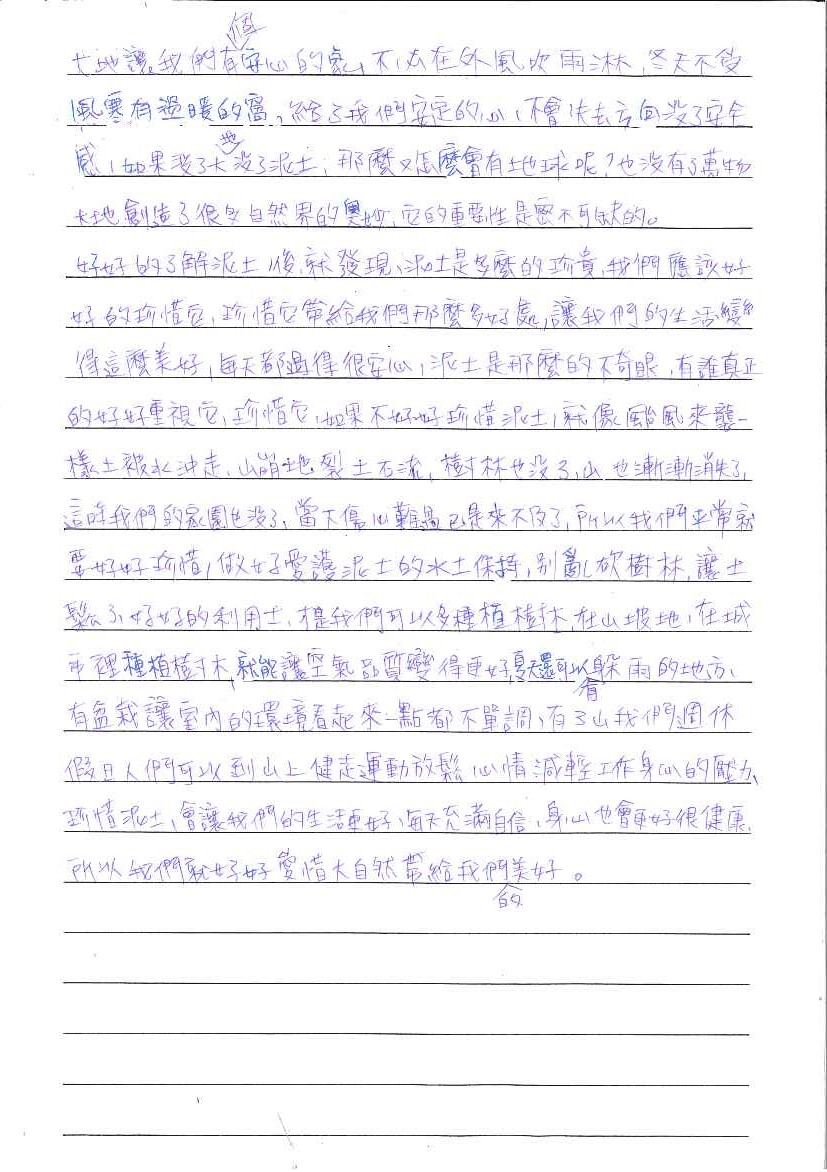 大地讓我們有個安心的家,不必在外風吹雨淋,冬天不受
風寒有溫暖的窩,給了我們安定的心,不會失去方向沒了安全
感,如果沒了大地沒了泥土,那麼又怎麼會有土地球呢?也沒有了萬物
大地創造了很多自然界的奧妙,它的重要性是密不可缺的。
好好的了解泥土後,就發現,泥土是多麼的珍貴,我們應該好
好的珍惜它,珍惜它帶給我們那麼多好處,讓我們的生活變
得這麼美好,每天都過得很安心,泥土是那麼的不奇眼,有誰真正
的好好重視它,珍惜它,如果不好好珍惜泥土,就像颱風來襲一
樣土被水沖走,山崩地裂土石流,樹林也沒了,山也漸漸消失了,
這時我們的家園也沒了,當下傷心難過已是來不及了,所以我們平常就
要好好珍惜,做好愛護泥土的水土保持,別亂砍樹林,讓土
鬆了,好好的利用土,才是我們可以多種植樹林,在山坡地,在城
市裡種植樹木,就能讓空氣品質變得更好,夏天還可以有躲雨的地方,
有盆栽讓室內的環境看起來一點都不單調,有了山我們週休
假日人們可以到山上健走運動放鬆心情減輕工作身心的壓力,
珍惜泥土,會讓我們的生活更好,每天充滿自信,身心也會更好很健康,
所以我們就好好愛惜大自然帶給我們的美好。